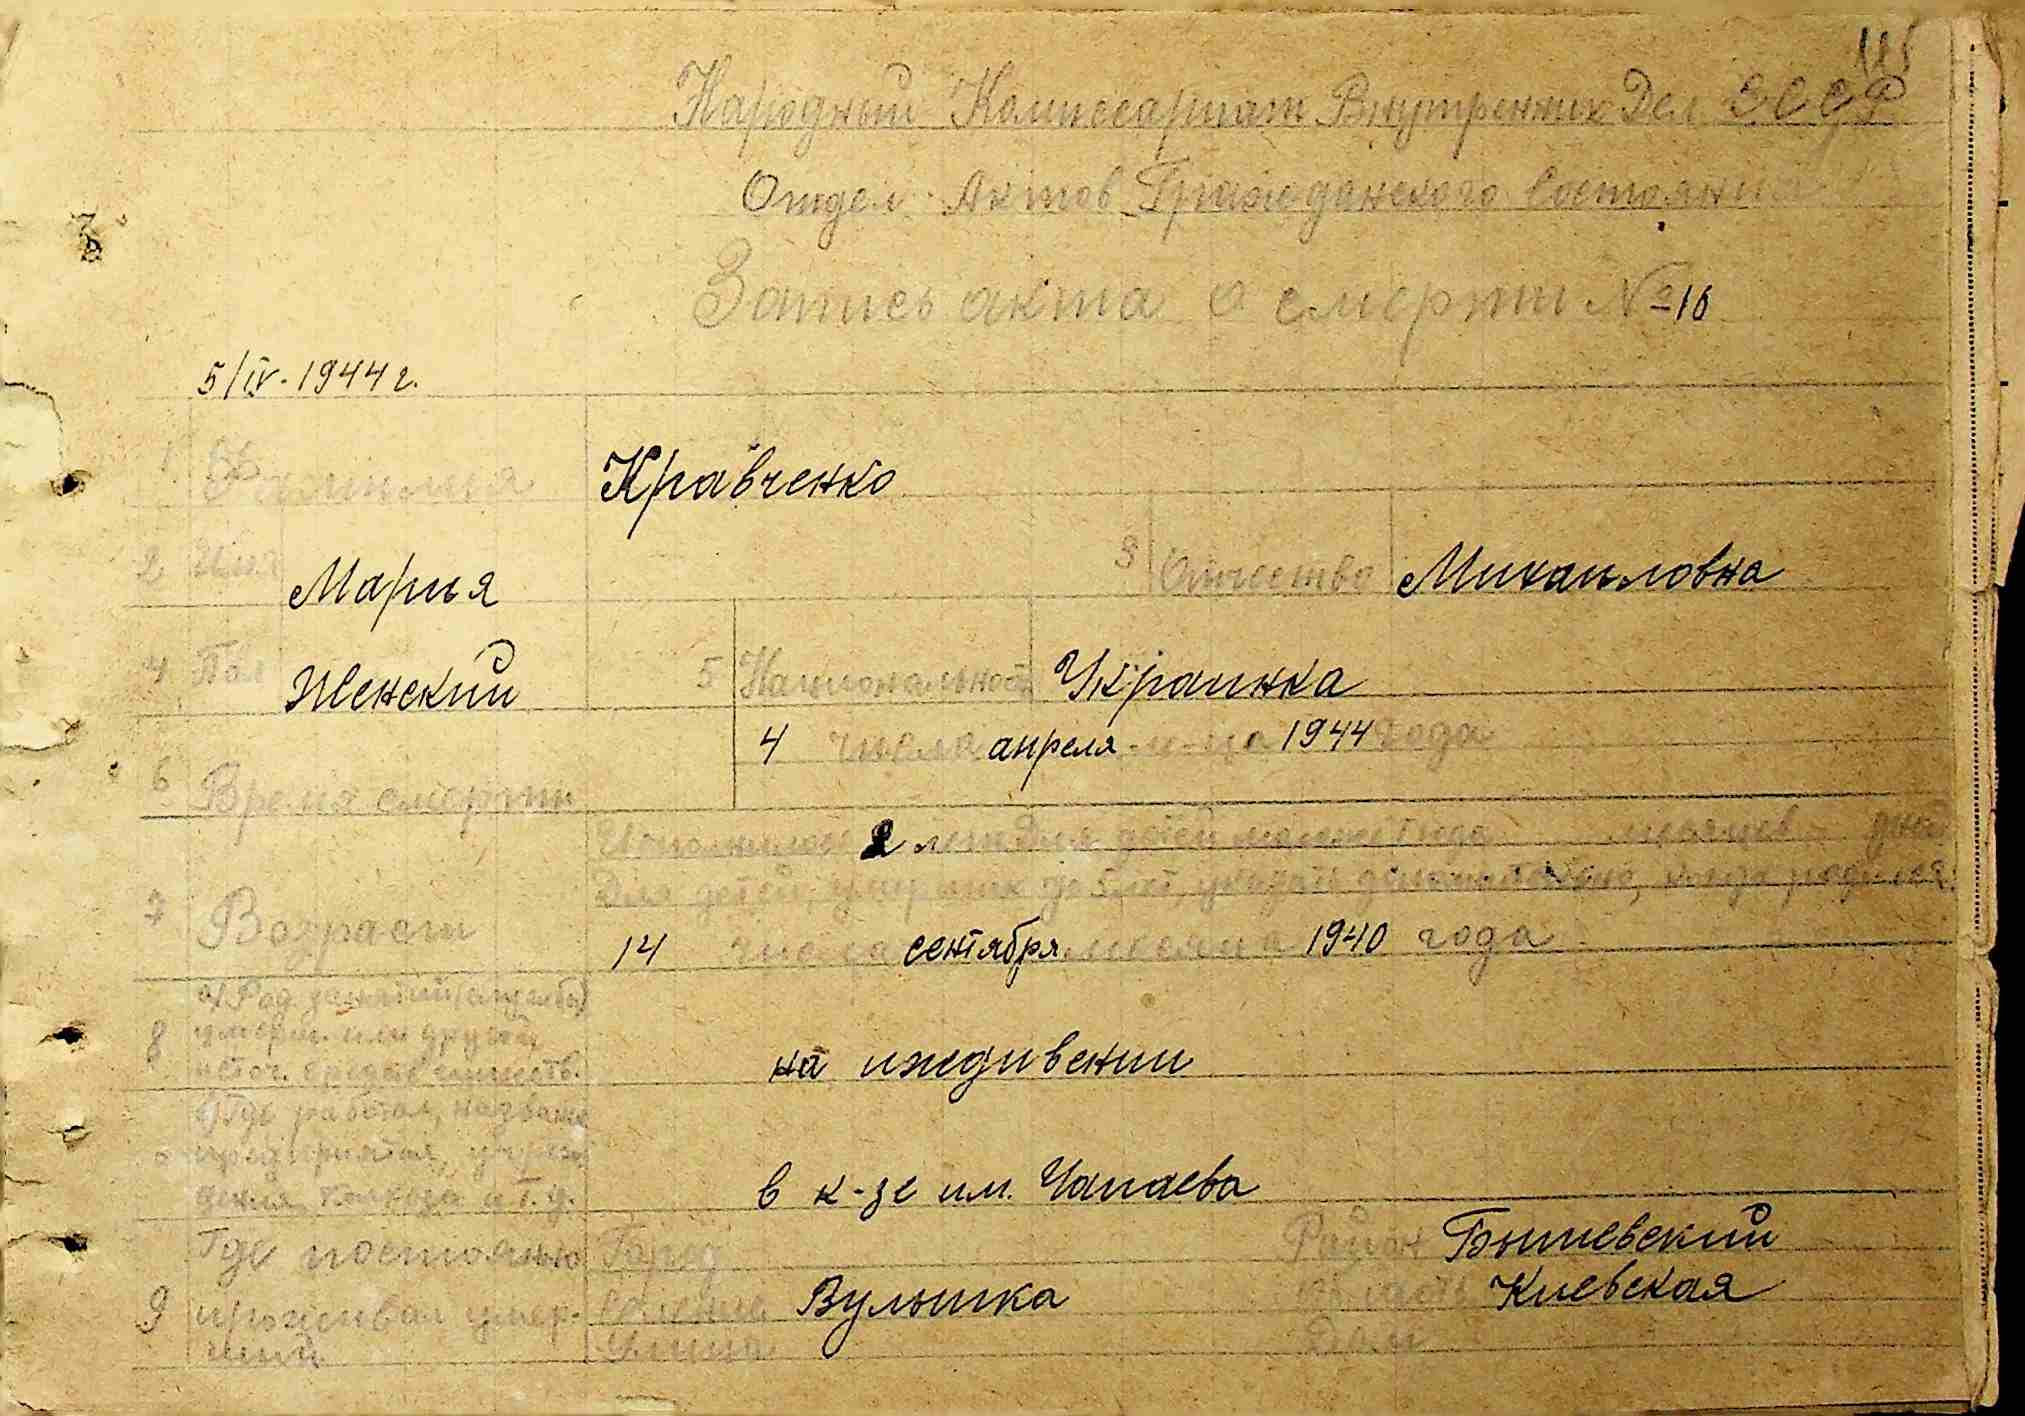 115
Народный Комиссариат Внутренних Дел СССР
Отдел Актов Гражданского Состояния
Запись акта о смерти № 16
5/IV. 1944 г.
1 Фамилия Кравченко
2 Имя Мария 3 Отчество Михаиловна
4 Пол Женский 5 Национальност Украинка
6 Время смерти 4 числа апреля м-ца 1944 года
Исполнилось 2 лет для детей моложе 1 года месяцев дней
Для детей, умерших до 5 лет, указать дополнительно, когда родился
7 Возраст 14 числа сентября месяца 1940 года
8 а) Род занятий (службы)
умерш. или другой
источ. средств существ. на иждивении
б) Где работал, назван
предприятия, учреж
дения, колхоза и т.д. в к-зе им. Чапаева
9 Где постоянно Город Район Бышевский
проживал умер- селение Вулышка Область Киевская
ший Улица Дом